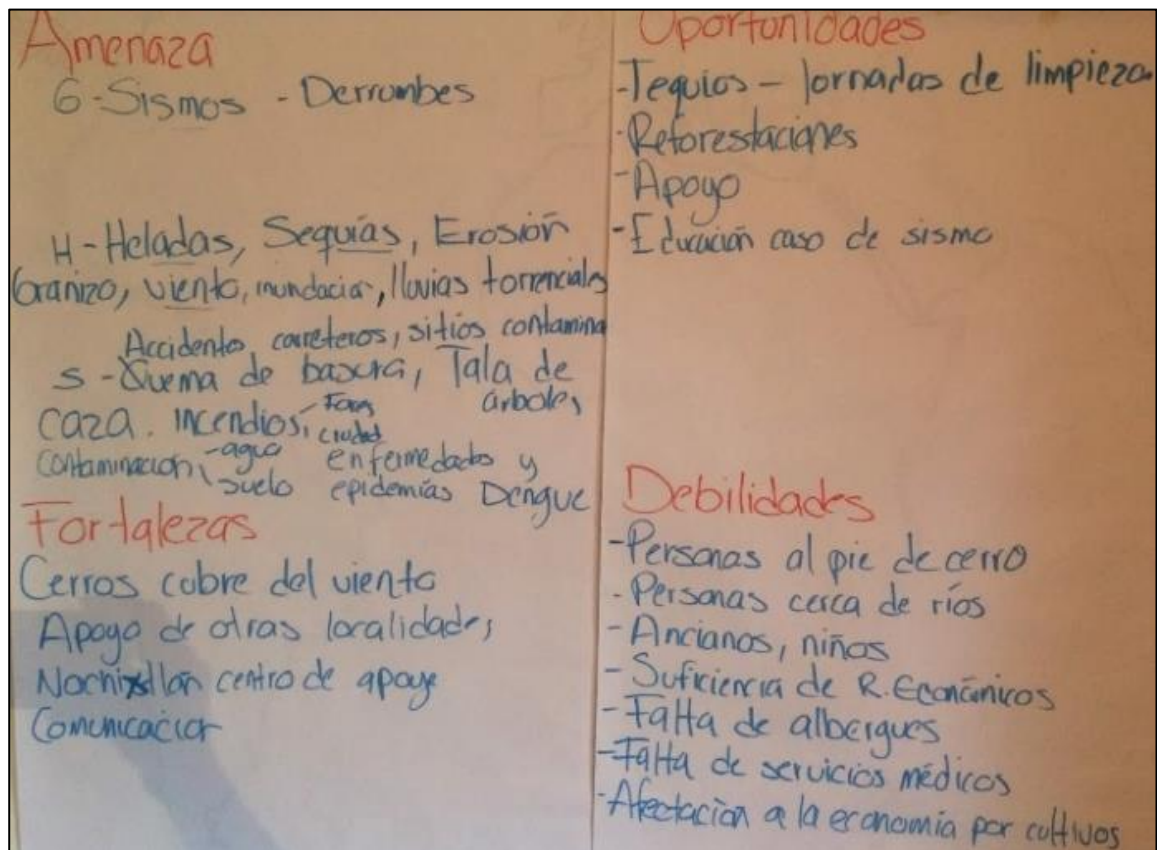 Amenaza
G-Sismos - Derrumbes
H-Heladas, Sequías, Erosión
Granizo, viento, inundacion, lluvias torrenciales
Accidentes carreteros, sitios contamina
S-Quema de basura, Tala de
arboles,
caza. incendios,
ciudad
contaminación, -agua enfermedades y
suelo epidemías Dengue
Fortalezas
Cerros cubre del viento
Apoyo de otras localidades
Nochixtlan centro de apoyo
Comunicacion
Oportunidades
-Tequios - Jornadas de limpieza
-Reforestaciones
-Apoyo
-Educación caso de sismo
Debilidades
-Personas al pie de cerro
-Personas cerca de ríos
-Ancianos, niños
-Suficiencia de R. Económicos
-Falta de albergues
-Falta de servicios médicos
-Afectación a la economia por cultivos